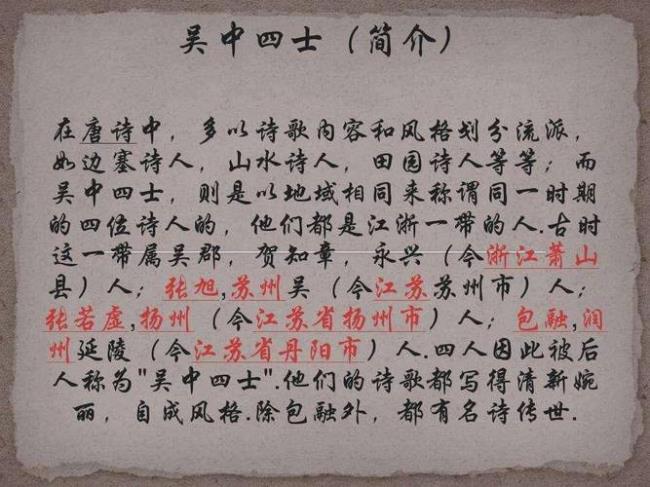 吴中四士（简介）
在唐诗中，多以诗歌内容和风格划分流派，
如边塞诗人，山水诗人，田园诗人等等；而
吴中四士，则是以地域相同来称谓同一时期
的四位诗人的，他们都是江浙一带的人.古时
这一带属吴郡，贺知章，永兴（今浙江萧山
县）人；张旭,苏州吴（今江苏苏州市）人；
张若虚,扬州（今江苏省扬州市）人；包融,润
州延陵（今江苏省丹阳市）人.四人因此被后
人称为"吴中四士".他们的诗歌都写得清新婉
丽，自成风格.除包融外，都有名诗传世.